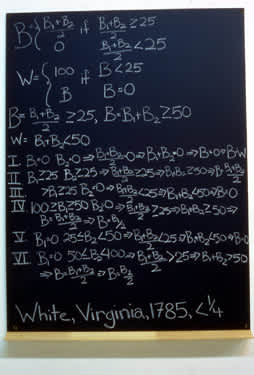 B={ B₁+B₂/2 if B₁+B₂/2 ≥25
0 B₁+B₂/2 <25
W={ 100 if B<25
B B=0
B= B₁+B₂/2 ≥25, B=B₁+B₂≥50
W= B₁+B₂<50
I. B₁=0 B₂=0⇒ B₁+B₂/2 =0⇒B₁+B₂=0⇒B=0⇒B=W
II B₁≥25 B₂≥25⇒ B₁+B₂/2 ≥25⇒B₁+B₂≥50⇒B= B₁+B₂/2
III ≥B₁≥25 B₂=0⇒ B₁+B₂/2 <25⇒B₁+B₂<50⇒B=0
IV 100≥B₁≥50 B₂=0⇒ B₁+B₂/2 ≥25⇒B₁+B₂≥50⇒
B= B₁+B₂/2 ⇒B=B₁/2
V B₁=0 25≤B₂<50⇒ B₁+B₂/2 <25⇒B₁+B₂<50⇒B=0
VI. B₁=0 50≤B₂≤100⇒ B₁+B₂/2 >25⇒B₁+B₂>50
⇒B= B₁+B₂/2 ⇒B= B₂/2
White, Virginia, 1785, <1/4